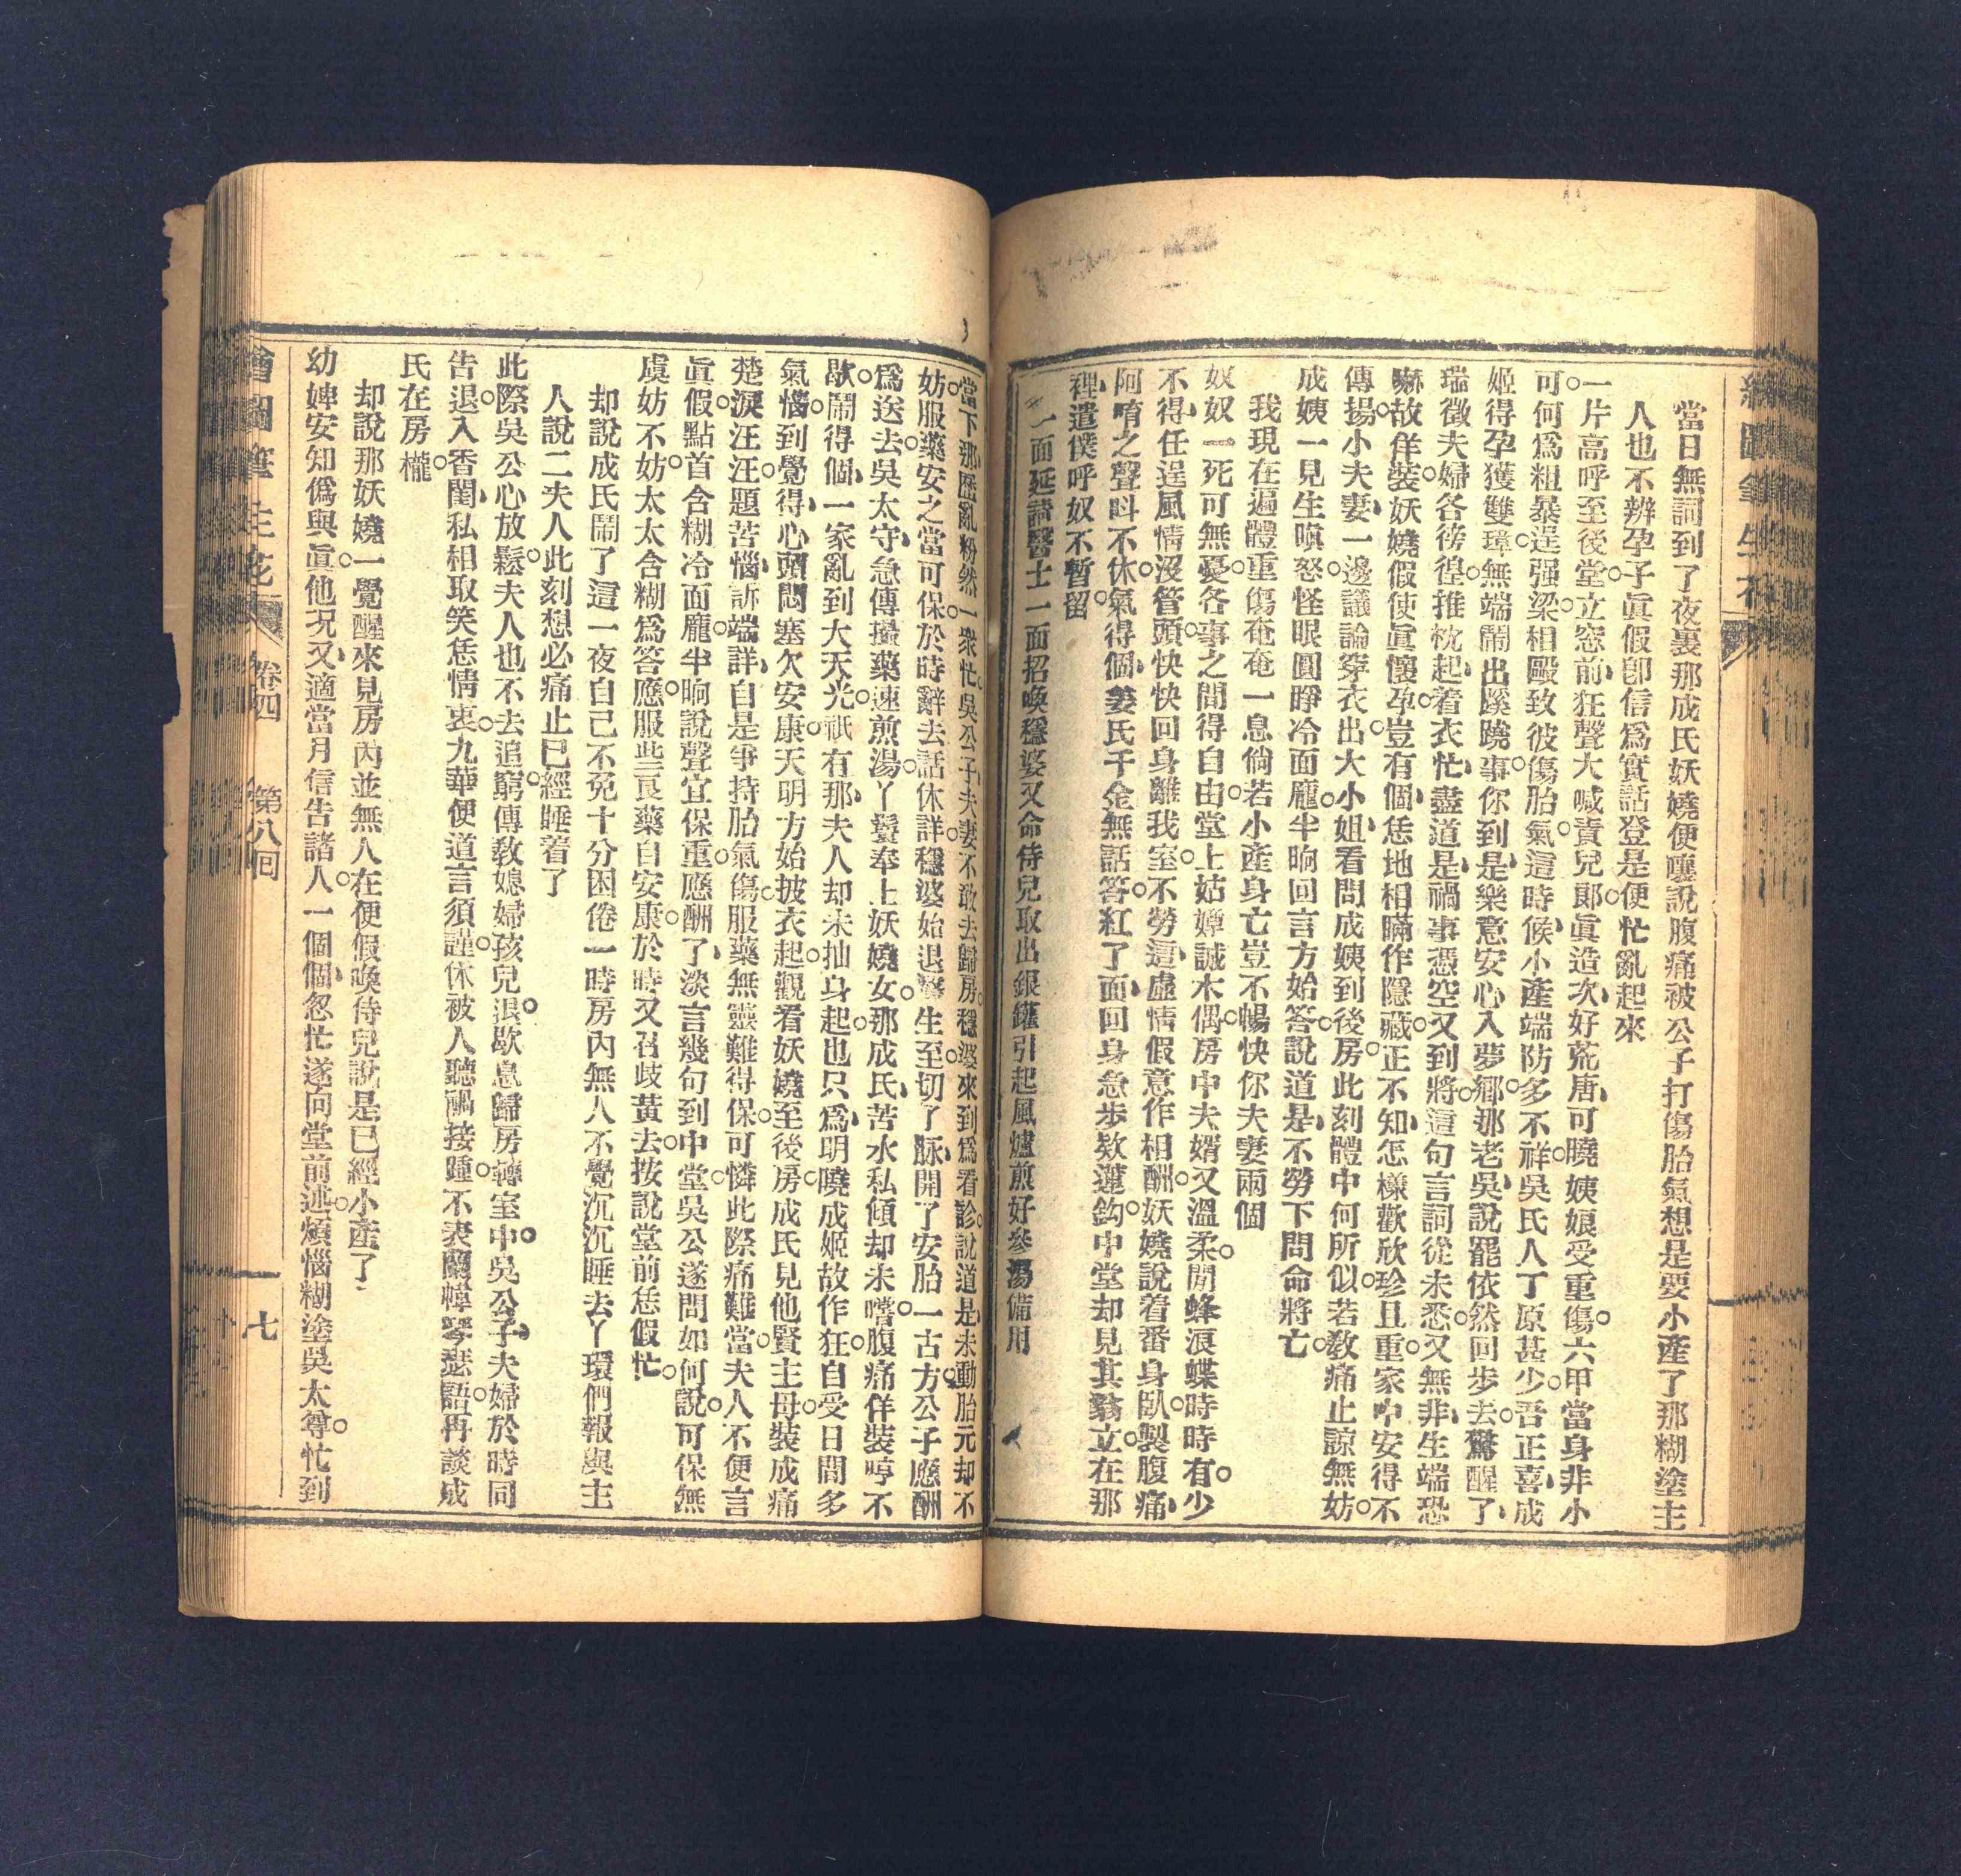 當日無詞到了夜裏那成氏妖嬈便嚷說腹痛被公子打傷胎氣想是要小產了那糊塗主
人也不辨孕子眞假卽信爲實話登是便忙亂起來
一片高呼至後堂。立窓前狂聲大喊責兒郞眞造次好荒唐可曉姨娘受重傷。六甲當身非小
可。何爲粗暴逞强梁。相毆致彼傷胎氣。這時候小產端防多不祥。吳氏人丁原甚少。吾正喜成
姬得孕獲雙璋。無端鬧出蹊蹺事。你到是樂意安心入夢鄉。那老吳說罷依然回步去。驚醒了
瑞徵夫婦各徬徨。推枕起着衣忙盡道是禍事憑空又到將。這句言詞從未悉。又無非生端恐
嚇故佯裝。妖嬈假使眞懷孕。豈有個恁地相瞞作隱藏。正不知怎樣歡欣珍且重。家中安得不
傳揚。小夫妻一邊議論穿衣出。大小姐看問成姨到後房。此刻體中何所似。若敎痛止諒無妨。
成姨一見生嗔怒。怪眼圓睜冷面龐。半晌回言方始答。說道是不勞下問命將亡。
我現在遍體重傷奄奄一息倘若小產身亡豈不暢快你夫妻兩個
奴奴一死可無憂。各事之間得自由。堂上姑嫜誠木偶。房中夫婿又溫柔。閒蜂浪蝶時時有。少
不得任逞風情沒管頭。快快回身離我室。不勞這虛情假意作相酬。妖嬈說着番身臥。製腹痛
阿唷之聲呌不休。氣得個姜氏千金無話答。紅了面回身急步欵蓮鈎。中堂却見其翁立。在那
裡遣僕呼奴不暫留。
一面延請醫士一面招喚穩婆又命侍兒取出銀鑵引起風爐煎好參湯備用
當下那歷亂粉然一衆忙。吳公子夫妻不敢去歸房。穩婆來到爲看診。說道是未動胎元却不
妨。服藥安之當可保。於時辭去話休詳。穩婆始退醫生至。切了脈開了安胎一古方。公子應酬
爲送去。吳太守急傳撮藥速煎湯。丫鬟奉上妖嬈女。那成氏苦水私傾却未嚐。腹痛佯裝哼不
歇。鬧得個一家亂到大天光。祇有那夫人却未抽身起。也只爲明曉成姬故作狂。自受日間多
氣惱。到覺得心頭悶塞欠安康。天明方始披衣起。觀看妖嬈至後房。成氏見他賢主母。裝成痛
楚淚汪汪。題苦惱訴端詳自是爭持胎氣傷。服藥無靈難得保。可憐此際痛難當。夫人不便言
眞假。點首含糊冷面龐。半晌說聲宜保重。應酬了淡言幾句到中堂。吳公遂問如何說。可保無
虞妨不妨。太太含糊爲答應。服些良藥自安康。於時又召歧黃去。按說堂前恁假忙。
却說成氏鬧了這一夜自己不免十分困倦一時房內無人不覺沉沉睡去丫環們報與主
人說二夫人此刻想必痛止已經睡着了
此際吳公心放鬆。夫人也不去追窮。傳敎媳婦孩兒退。歇息歸房轉室中。吳公子夫婦於時同
告退。入香閨私相取笑恁情衷。九華便道言須謹。休被人聽禍接踵。不表蘭幃琴瑟語。再談成
氏在房櫳。
却說那妖嬈一覺醒來見房內並無人在便假喚侍兒說是已經小產了
幼婢安知僞與眞。他況又適當月信告諸人。一個個忽忙遂向堂前述。煩惱糊塗吳太尊。忙到
繪圖筆生花 卷四 第八回 七